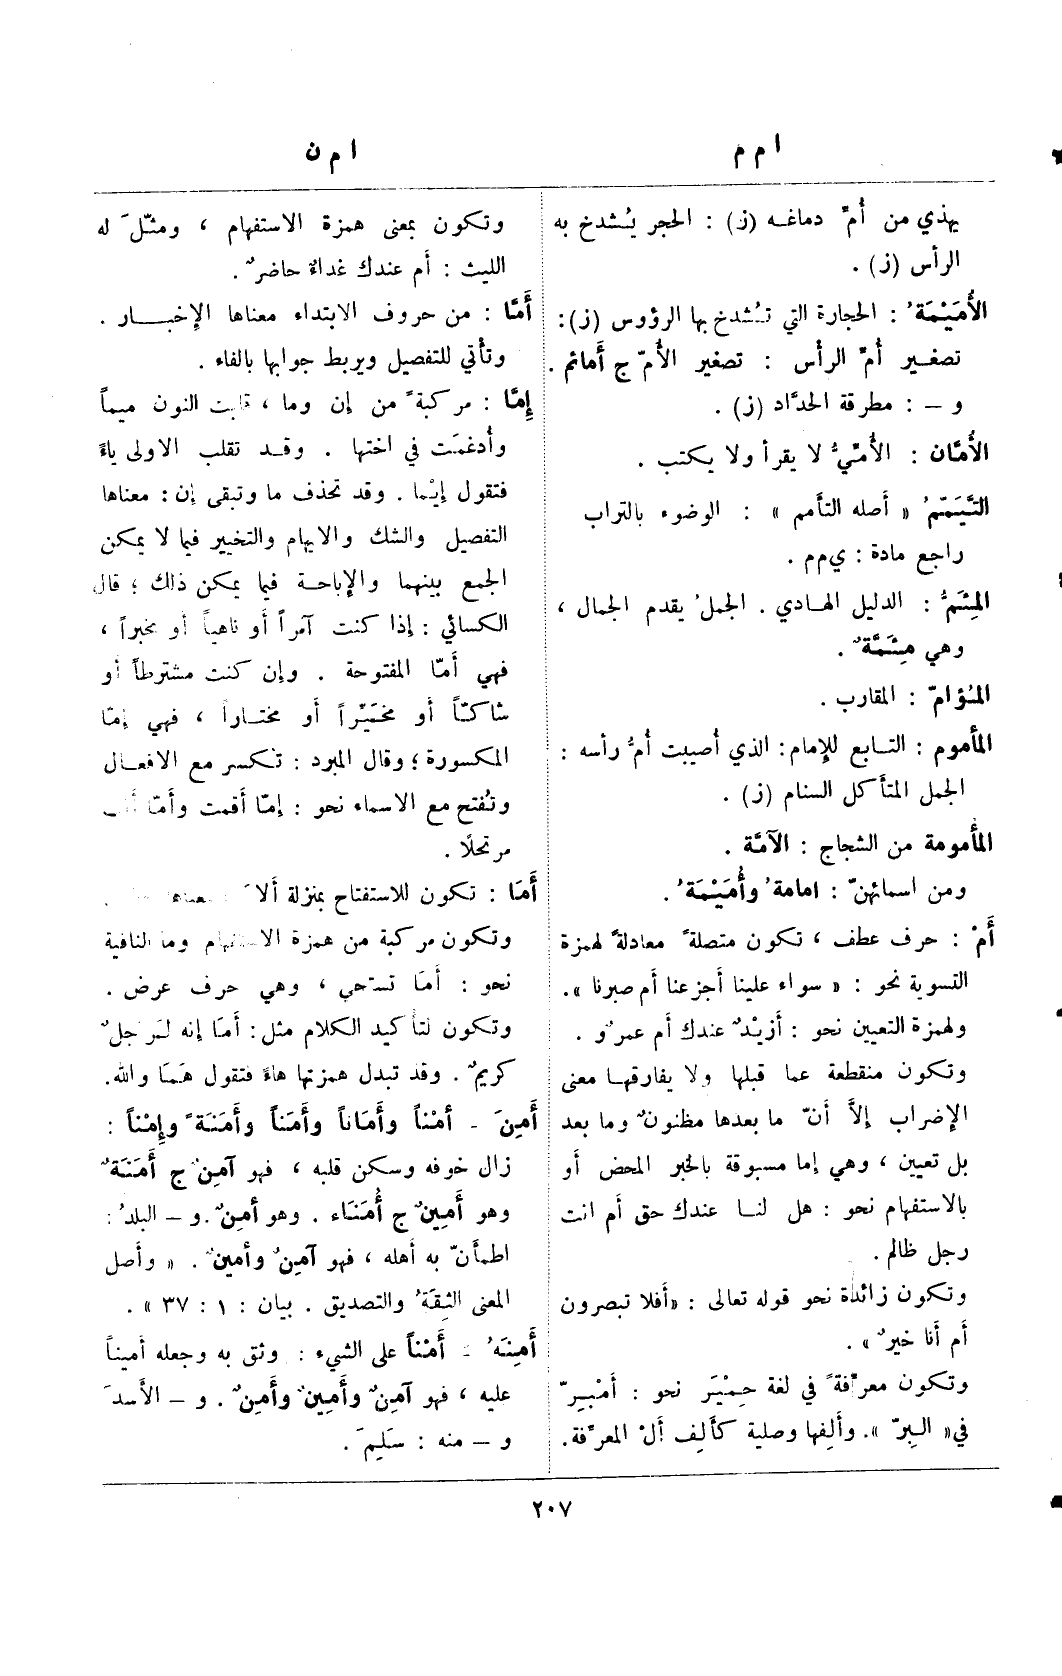 ا م م
ا م ن
يهذي من أُمِّ دماغه (ز) : الحجر يُشدخ به
الرأس (ز) .
الأُمَيْمَةُ : الحجارة التي تُشدخ بها الرؤوس (ز):
تصغير أُمِّ الرأس : تصغير الأُمّ ج أَمائم .
و – : مطرقة الحدَّاد (ز) .
الأُمَّان : الأُمِّيُّ لا يقرأ ولا يكتب .
التَّيَمُّمُ « أصله التأمم » : الوضوء بالتراب
راجع مادة : ي م م .
المِئَمُّ : الدليل الهادي . الجملُ يقدم الجمال ،
وهي مِئَمَّةٌ .
المُؤامّ : المقارب .
المأموم : التابع للإمام : الذي أُصيبت أُمُّ رأسه :
الجمل المتأكل السنام (ز) .
المأمومة من الشجاج : الآمَّة .
ومن اسمائهنّ : امامةُ وأُمَيْمَةُ .
أَمْ : حرف عطف ، تكون متصلةً معادلةً لهمزة
التسوية نحو : « سواء علينا أجزعنا أم صبرنا ».
ولهمزة التعيين نحو : أَزيْدٌ عندك أم عمرٌو .
وتكون منقطعة عما قبلها ولا يفارقها معنى
الإضراب إلاَّ أنّ ما بعدها مظنونٌ وما بعد
بل تعيين ، وهي إما مسبوقة بالخبر المحض أو
بالاستفهام نحو : هل لنا عندك حق أم انت
رجل ظالم .
وتكون زائدة نحو قوله تعالى : «أفلا تبصرون
أم أنا خيرٌ » .
وتكون معرِّفةً في لغة حِمْيَر نحو : أَمْبِرّ
في« البِرّ ». وأَلِفها وصلية كألِف ألْ المعرِّفة.
وتكون بمعنى همزة الاستفهام ، ومثّلَ له
الليث : أم عندك غداءٌ حاضرٌ .
أَمَّا : من حروف الابتداء معناها الإخبار .
وتأتي للتفصيل ويربط جوابها بالفاء .
إمَّا : مركبةً من إن وما ، قلبت النون ميماً
وأُدغمَت في اختها . وقد تقلب الاولى ياءً
فتقول إيْما . وقد تحذف ما وتبقى إن : معناها
التفصيل والشك والايهام والتخيير فيما لا يمكن
الجمع بينهما والإباحة فيما يمكن ذلك ؛ قال
الكسائي : إذا كنت آمراً أو ناهياً أو مخبراً ،
فهي أمّا المفتوحة . وإن كنت مشترطاً أو
شاكّاً أو مخَيِّراً أو مختاراً ، فهي إمّا
المكسورة ؛ وقال المبرد : تكسر مع الافعال
وتُفتح مع الاسماء نحو : إمّا أقمت وأمّا
مرتحلًا .
أَمَا : تكون للاستفتاح بمنزلة ألاَ معناها .
وتكون مركبة من همزة الاستفهام وما النافية
نحو : أمَا تستحي ، وهي حرف عرض .
وتكون لتأكيد الكلام مثل : أمَا إنه لرجلٌ
كريمٌ . وقد تبدل همزتها هاءً فتقول هَمَا والله.
أَمِنَ - أمْناً وأَمَاناً وأَمَناً وأَمَنَةً وإمْناً :
زال خوفه وسكن قلبه ، فهو آمِنٌ ج أَمَنَةٌ
وهو أَمِينٌ ج أُمَنَاء . وهو أمِنٌ .و – البلدُ :
اطمأنّ به أهله ، فهو آمِنٌ وأمينٌ . « وأصل
المعنى الثِقَةُ والتصديق . بيان : ١ : ٣٧ » .
أَمِنَهُ - أَمْناً على الشيء : وثق به وجعله أميناً
عليه ، فهو آمِنٌ وأَمِينٌ وأَمِنٌ . و – الأسدَ
و – منه : سَلِيمَ .
٢٠٧